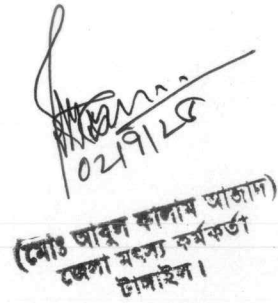 (মোঃ আবুল কালাম আজাদ)
জেলা মৎস্য কর্মকর্তা
টাঙ্গাইল।